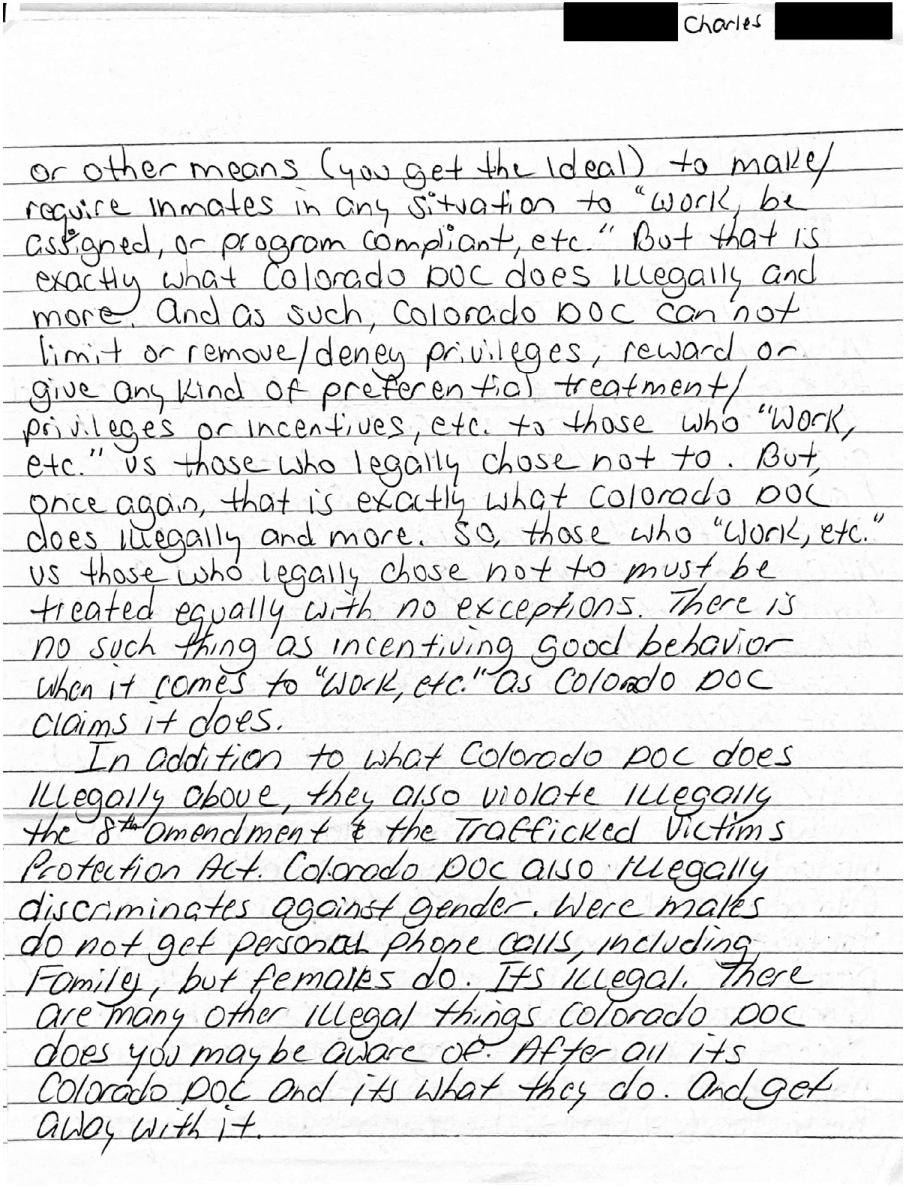 Charles
or other means (you get the Ideal) to make/
require Inmates in any situation to "Work, be
assigned, or program compliant, etc." But that is
exactly what Colorado DOC does Illegally and
more. And as such, Colorado DOC can not
limit or remove/deney privileges, reward or
give any kind of preferential treatment/
privileges or incentives, etc. to those who "Work,
etc." vs those who legally chose not to. But,
once again, that is exactly what Colorado DOC
does illegally and more. So, those who "Work, etc."
vs those who legally chose not to must be
treated equally with no exceptions. There is
no such thing as incentiving good behavior
when it comes to "Work, etc." as Colorado DOC
claims it does.
In addition to what Colorado DOC does
Illegally above, they also violate Illegally
the 8th amendment & the Trafficked Victims
Protection Act. Colorado DOC also Illegally
discriminates against gender. Were males
do not get personal phone calls, including
Family, but females do. Its Illegal. There
are many other Illegal things Colorado DOC
does you may be aware of. After all its
Colorado DOC and its what they do. And get
away with it.